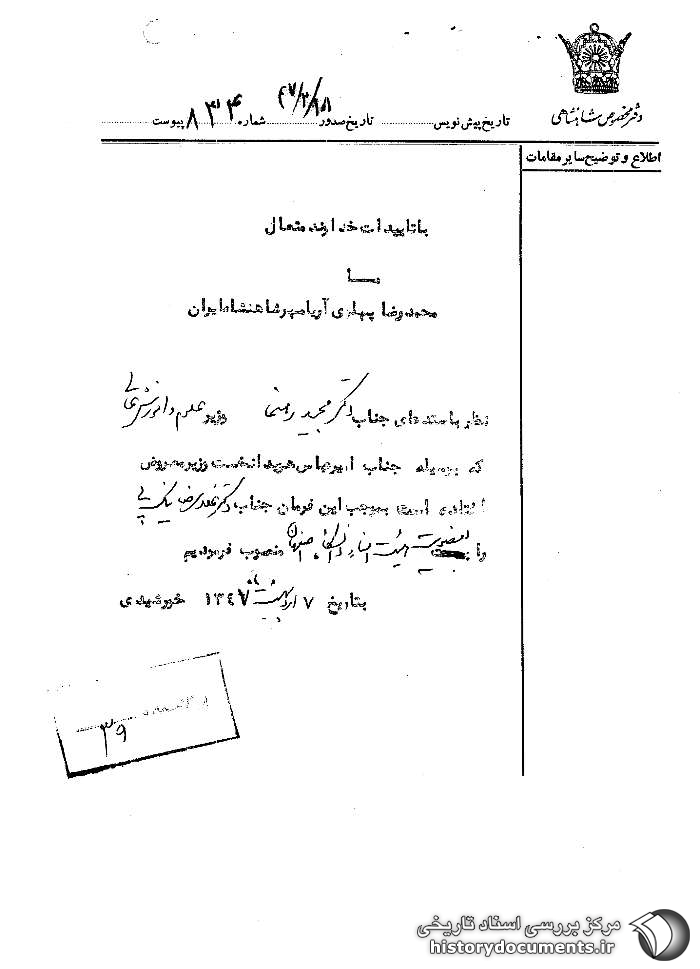 دفتر مخصوص شاهنشاهی
تاریخ پیش نویس تاریخ صدور ۴۷/۲/۱۸ شماره ۸۳۴ پیوست
اطلاع و توضیح سایر مقامات
با تاییدات خداوند متعال
ما
محمدرضا پهلوی آریامهر شاهنشاه ایران
نظر باستدعای جناب دکتر مجید رهنما وزیر علوم و آموزش عالی
که بوسیله جناب امیرعباس هویدا نخست وزیر معروض
افتاده است بموجب این فرمان جناب دکتر غلامرضا نیک پی
را بعضویت هیئت امناء دانشگاه اصفهان منصوب فرمودیم
بتاریخ ۷ اردیبهشت ماه ۱۳٤۷ خورشیدی
۳۹
مرکز بررسی اسناد تاریخی
historydocuments.ir